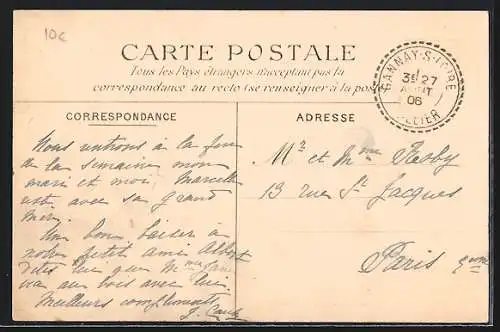 10c
CARTE POSTALE
Tous les Pays étrangers n'acceptant pas la
correspondance au recto (se renseigner à la poste
GANNAY-S-LOIRE
3E 27
AOUT
06
ALLIER
CORRESPONDANCE
ADRESSE
Nous rentrons à la fin
de la semaine mon
mari et moi, Marcelle
est avec sa grand
Mère.
Un bon baiser à
notre petit ami Albert
dites lui que
au bois avec lui.
Meilleurs compliments
Mr et Mme
13 rue St Jacques
Paris